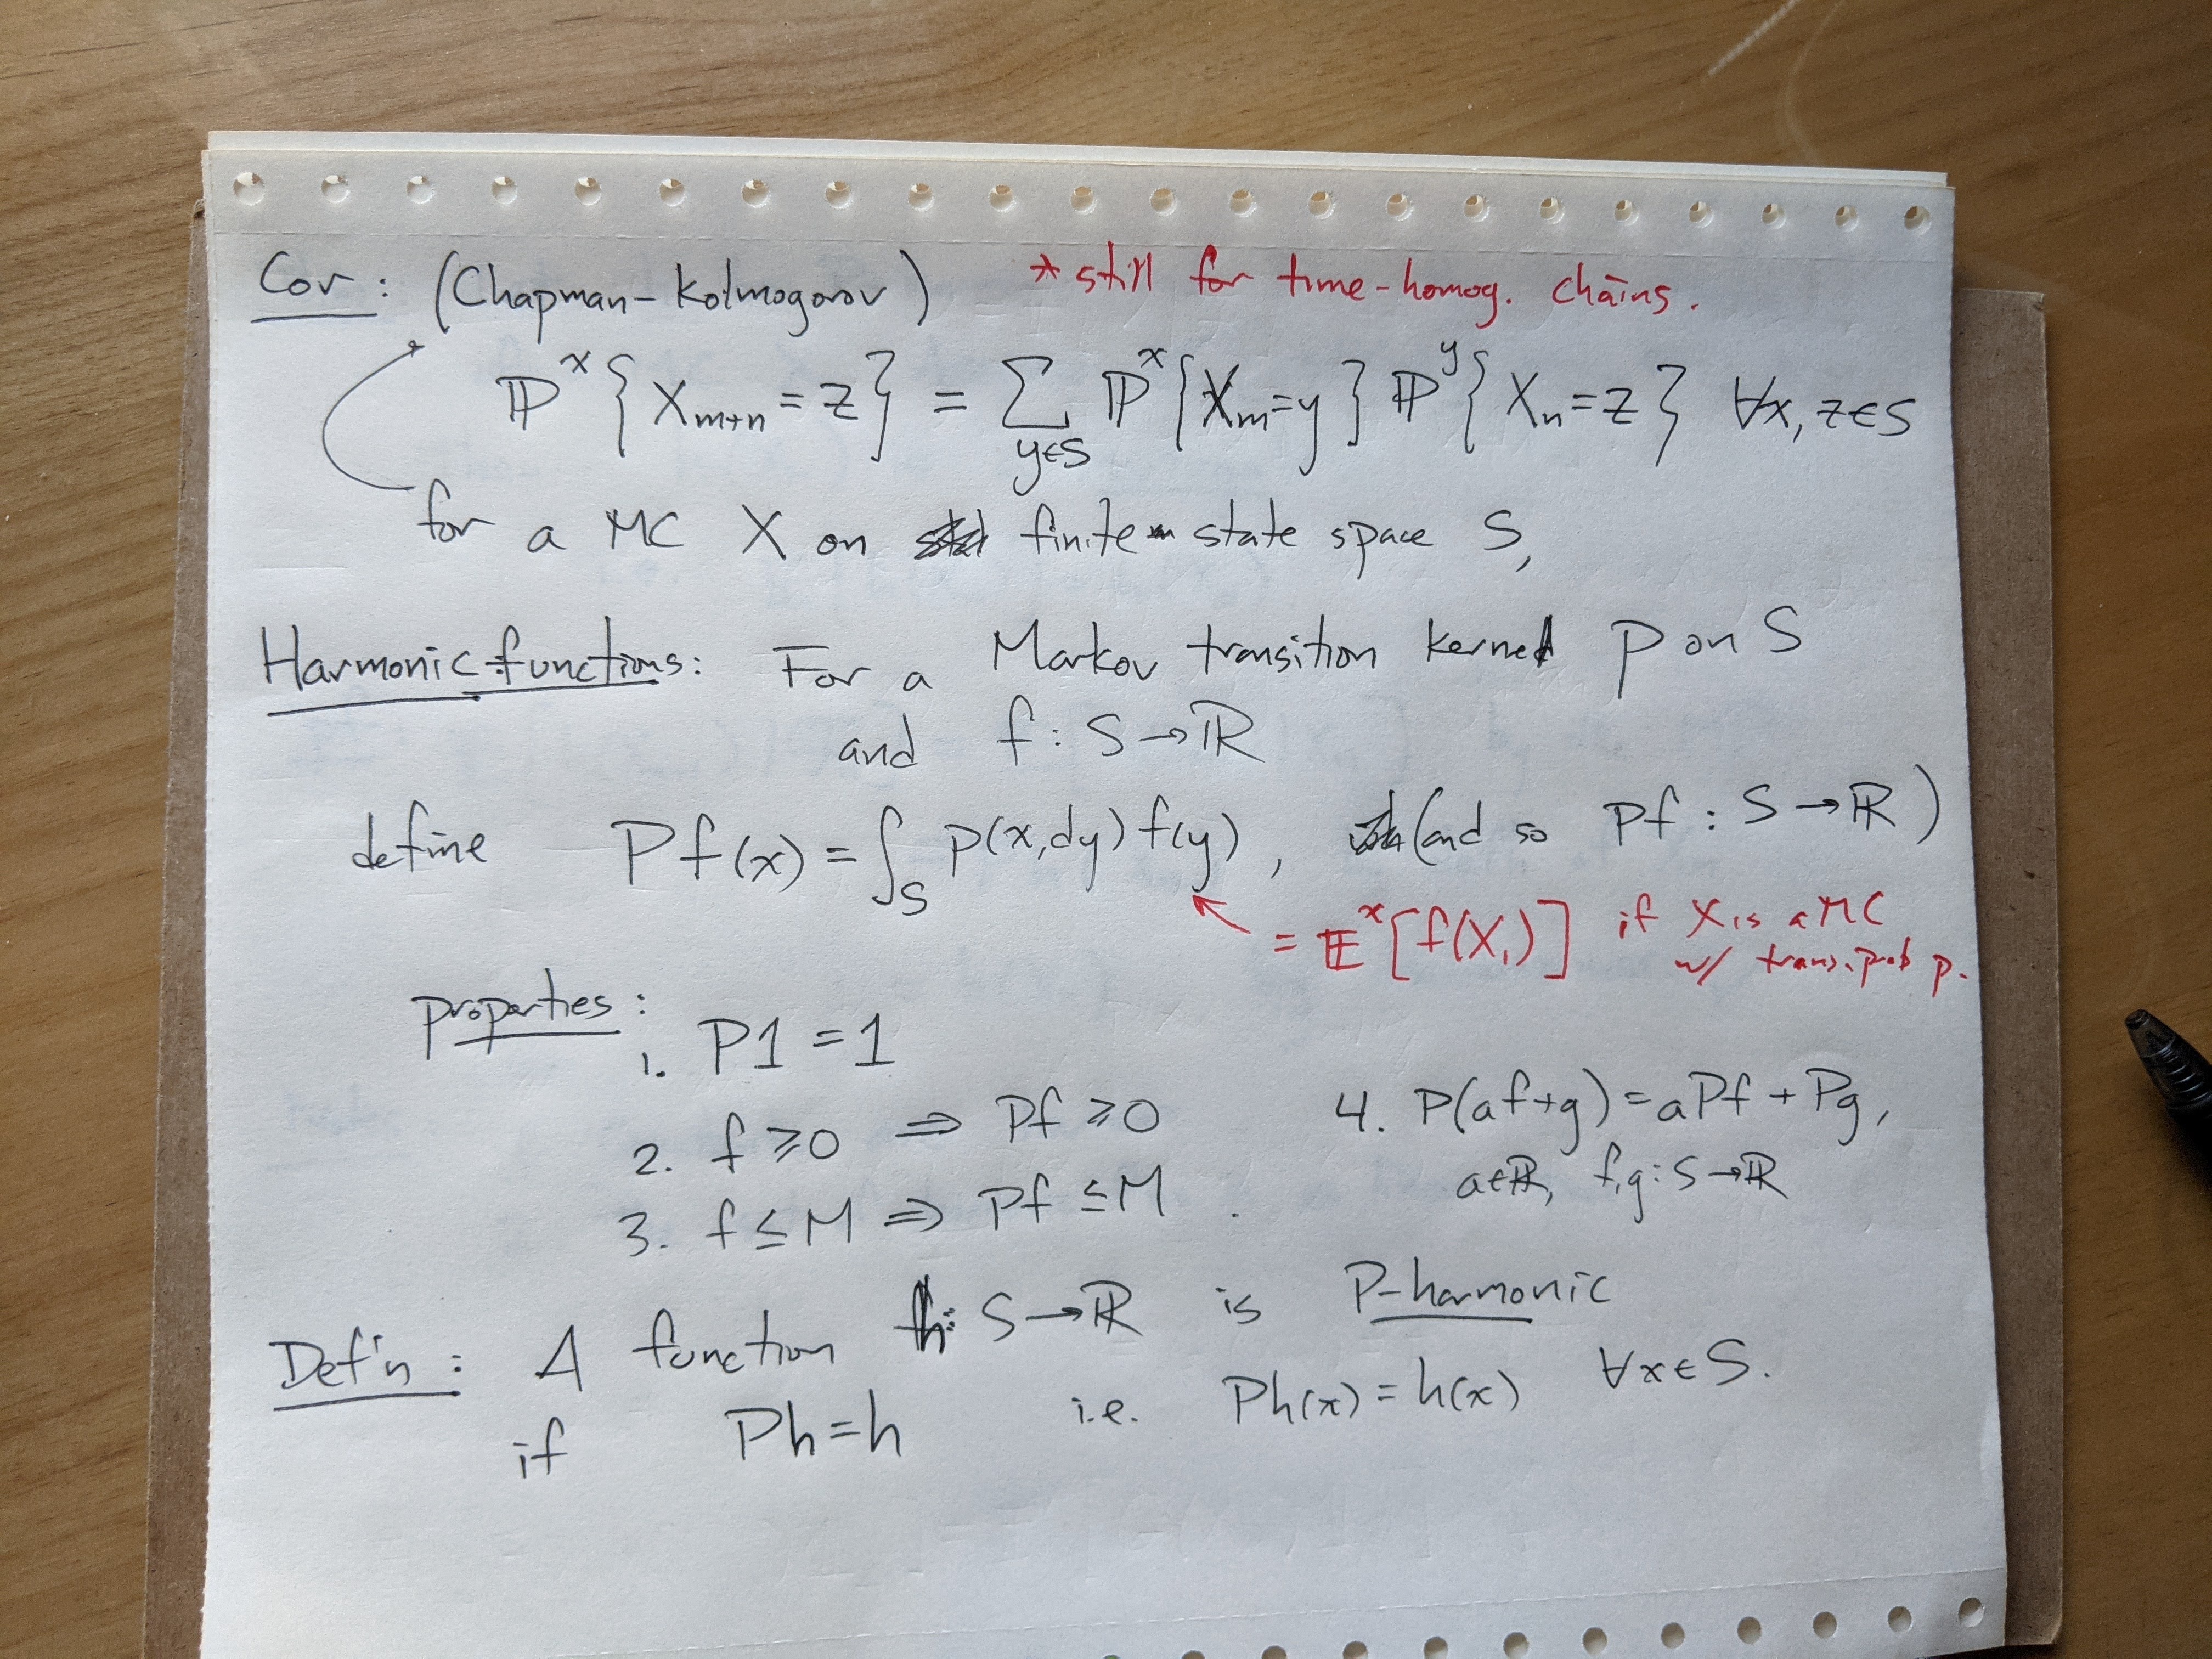 Cor: (Chapman-Kolmogorov) * still for time-homog. chains.
ℙˣ{X_{m+n} = z} = Σ_{y∈S} ℙˣ{X_m = y} ℙʸ{X_n = z} ∀x, z∈S
for a MC X on finite state space S,
Harmonic functions: For a Markov transition kernel p on S
and f: S→ℝ
define Pf(x) = ∫_S p(x,dy) f(y), (and so Pf: S→ℝ)
= 𝔼ˣ[f(X₁)] if X is a MC
w/ trans. prob p.
properties:
1. P1 = 1
2. f ≥ 0 ⇒ Pf ≥ 0
3. f ≤ M ⇒ Pf ≤ M.
4. P(af+g) = aPf + Pg,
a∈ℝ, f,g: S→ℝ
Def'n: A function h: S→ℝ is P-harmonic
if Ph = h i.e. Ph(x) = h(x) ∀x∈S.